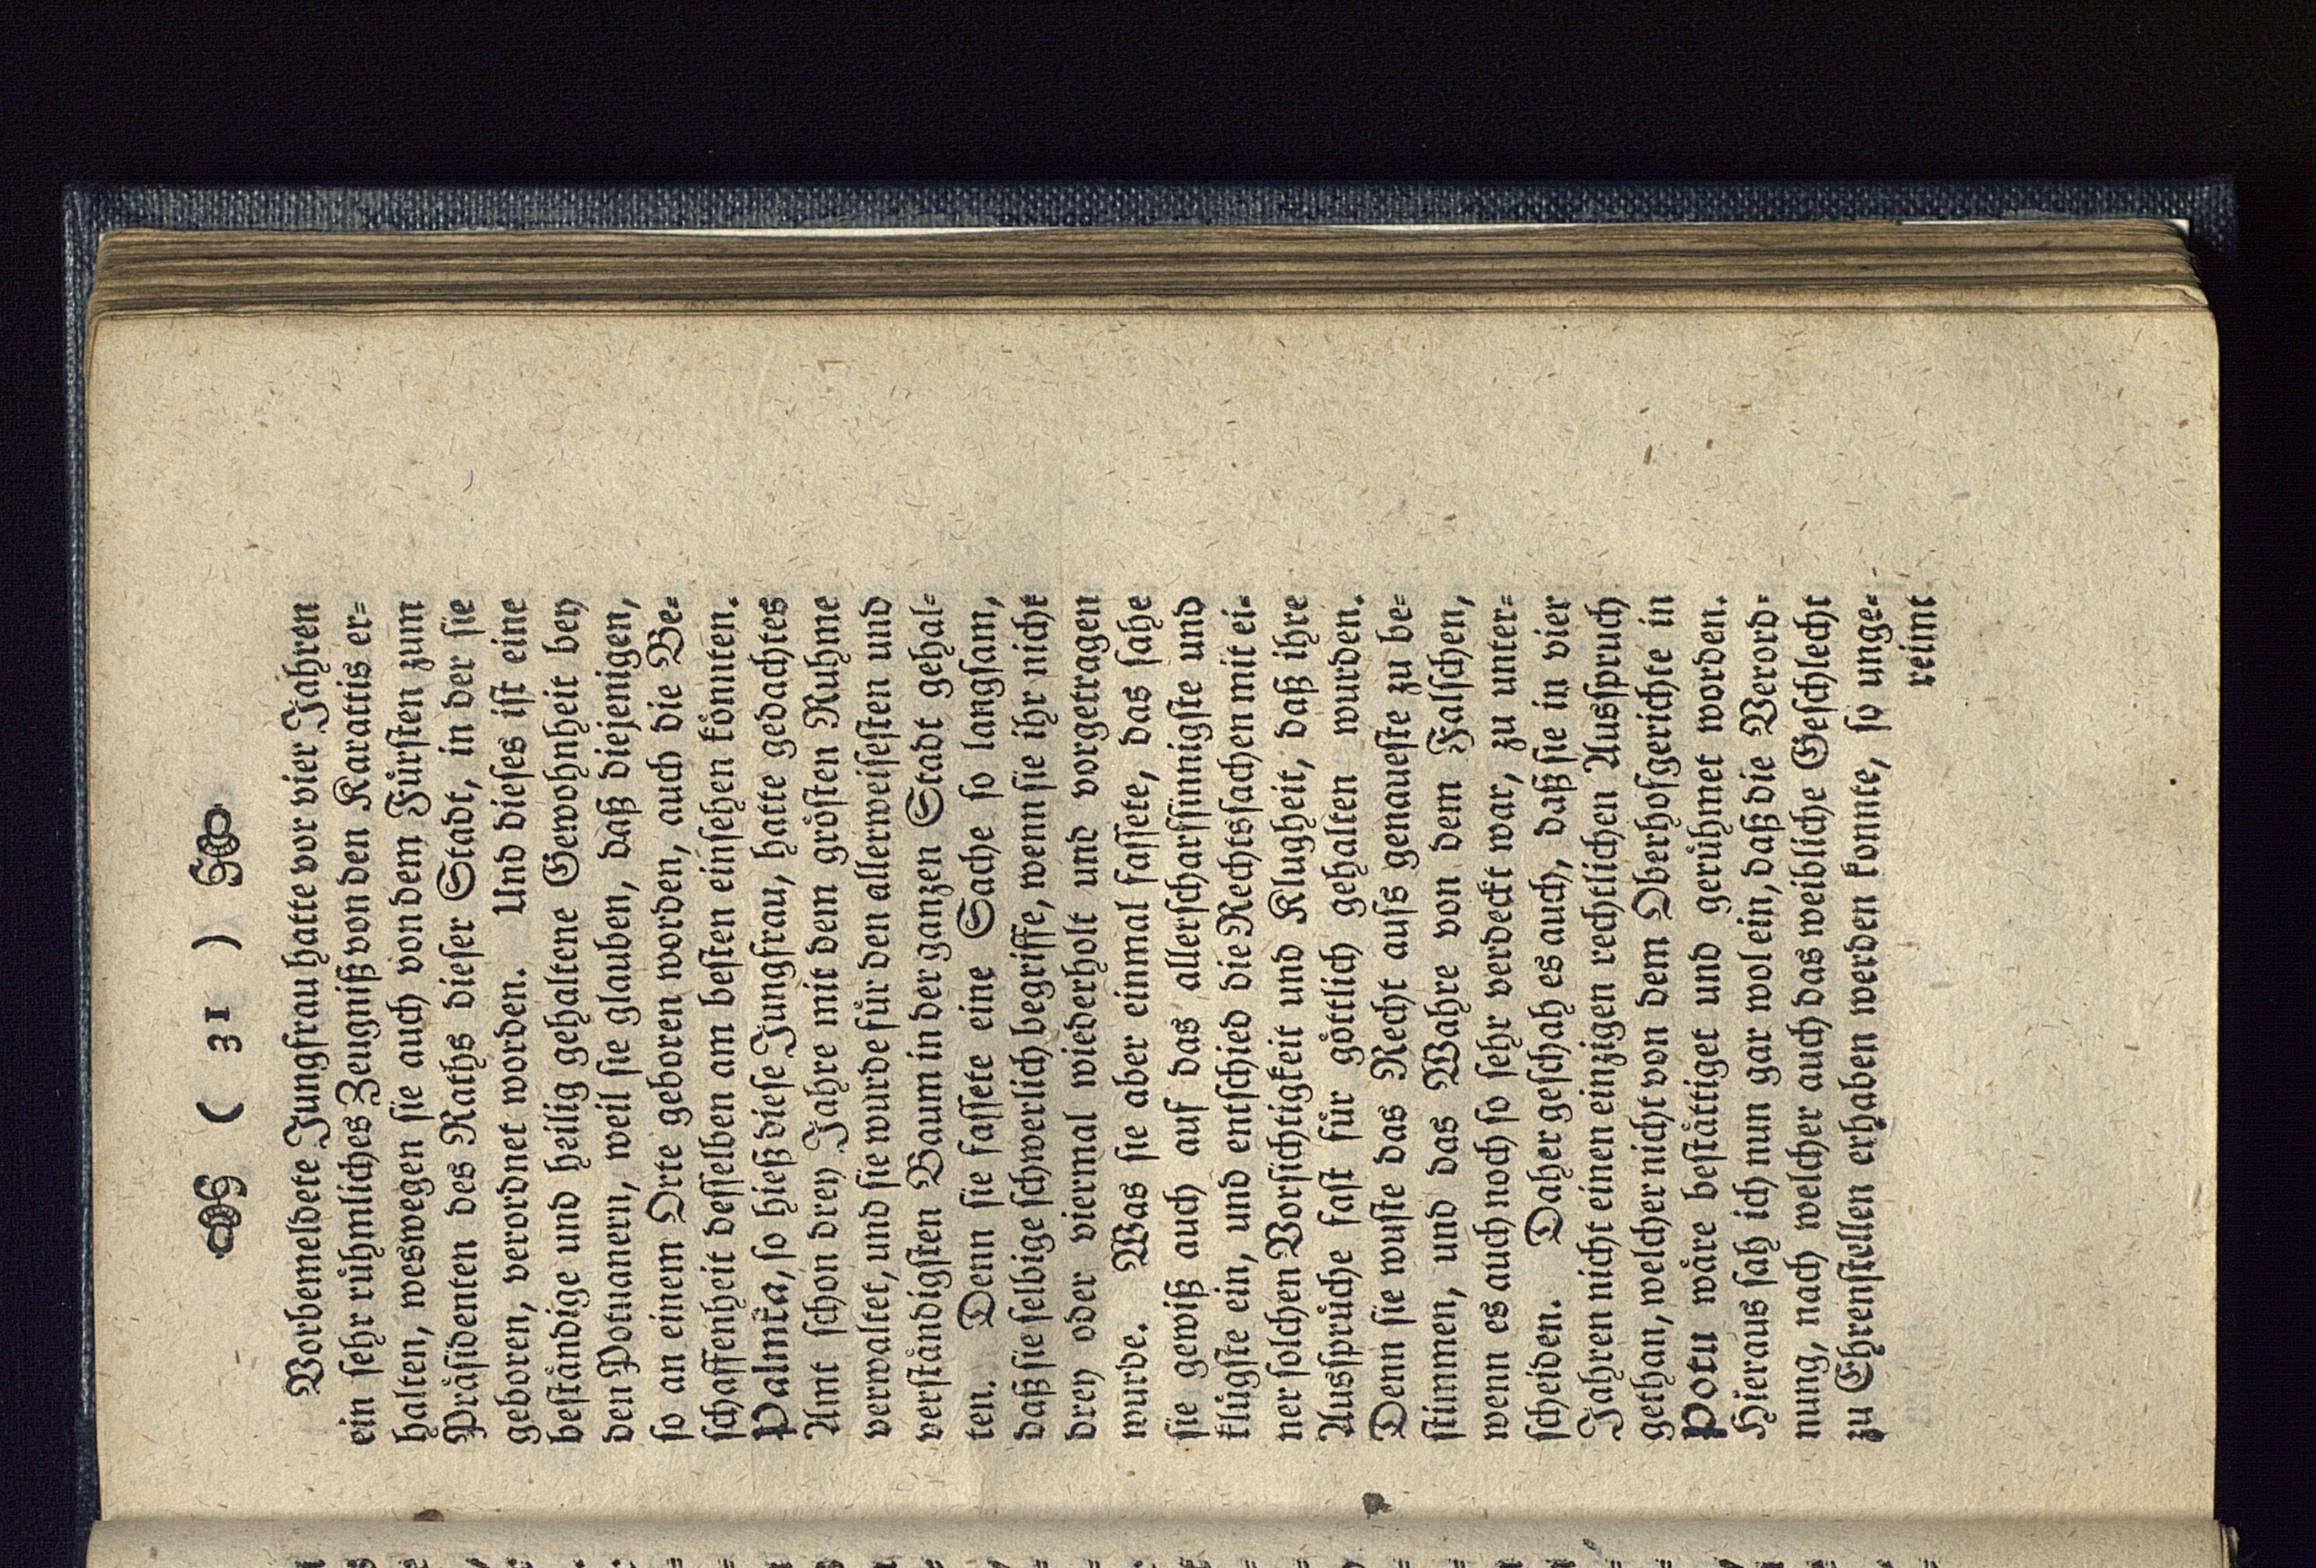 ( 31 )
Vorbemeldete Jungfrau hatte vor vier Jahren
ein sehr rühmliches Zeugniß von den Karattis er=
halten, weswegen sie auch von dem Fürsten zum
Präsidenten des Raths dieser Stadt, in der sie
geboren, verordnet worden. Und dieses ist eine
beständige und heilig gehaltene Gewohnheit bey
den Potuanern, weil sie glauben, daß diejenigen,
so an einem Orte geboren worden, auch die Be=
schaffenheit desselben am besten einsehen könnten.
Palmka, so hieß diese Jungfrau, hatte gedachtes
Amt schon drey Jahre mit dem grösten Ruhme
verwaltet, und sie wurde für den allerweisesten und
verständigsten Baum in der ganzen Stadt gehal=
ten. Denn sie fassete eine Sache so langsam,
daß sie selbige schwerlich begriffe, wenn sie ihr nicht
drey oder viermal wiederholt und vorgetragen
wurde. Was sie aber einmal fassete, das sahe
sie gewiß auch auf das allerscharfsinnigste und
klügste ein, und entschied die Rechtssachen mit ei=
ner solchen Vorsichtigkeit und Klugheit, daß ihre
Aussprüche fast für göttlich gehalten wurden.
Denn sie wuste das Recht aufs genaueste zu be=
stimmen, und das Wahre von dem Falschen,
wenn es auch noch so sehr verdeckt war, zu unter=
scheiden. Daher geschah es auch, daß sie in vier
Jahren nicht einen einzigen rechtlichen Ausspruch
gethan, welcher nicht von dem Oberhofgerichte in
Potu wäre bestättiget und gerühmet worden.
Hieraus sah ich nun gar wol ein, daß die Verord=
nung, nach welcher auch das weibliche Geschlecht
zu Ehrenstellen erhaben werden konnte, so unge=
reimt